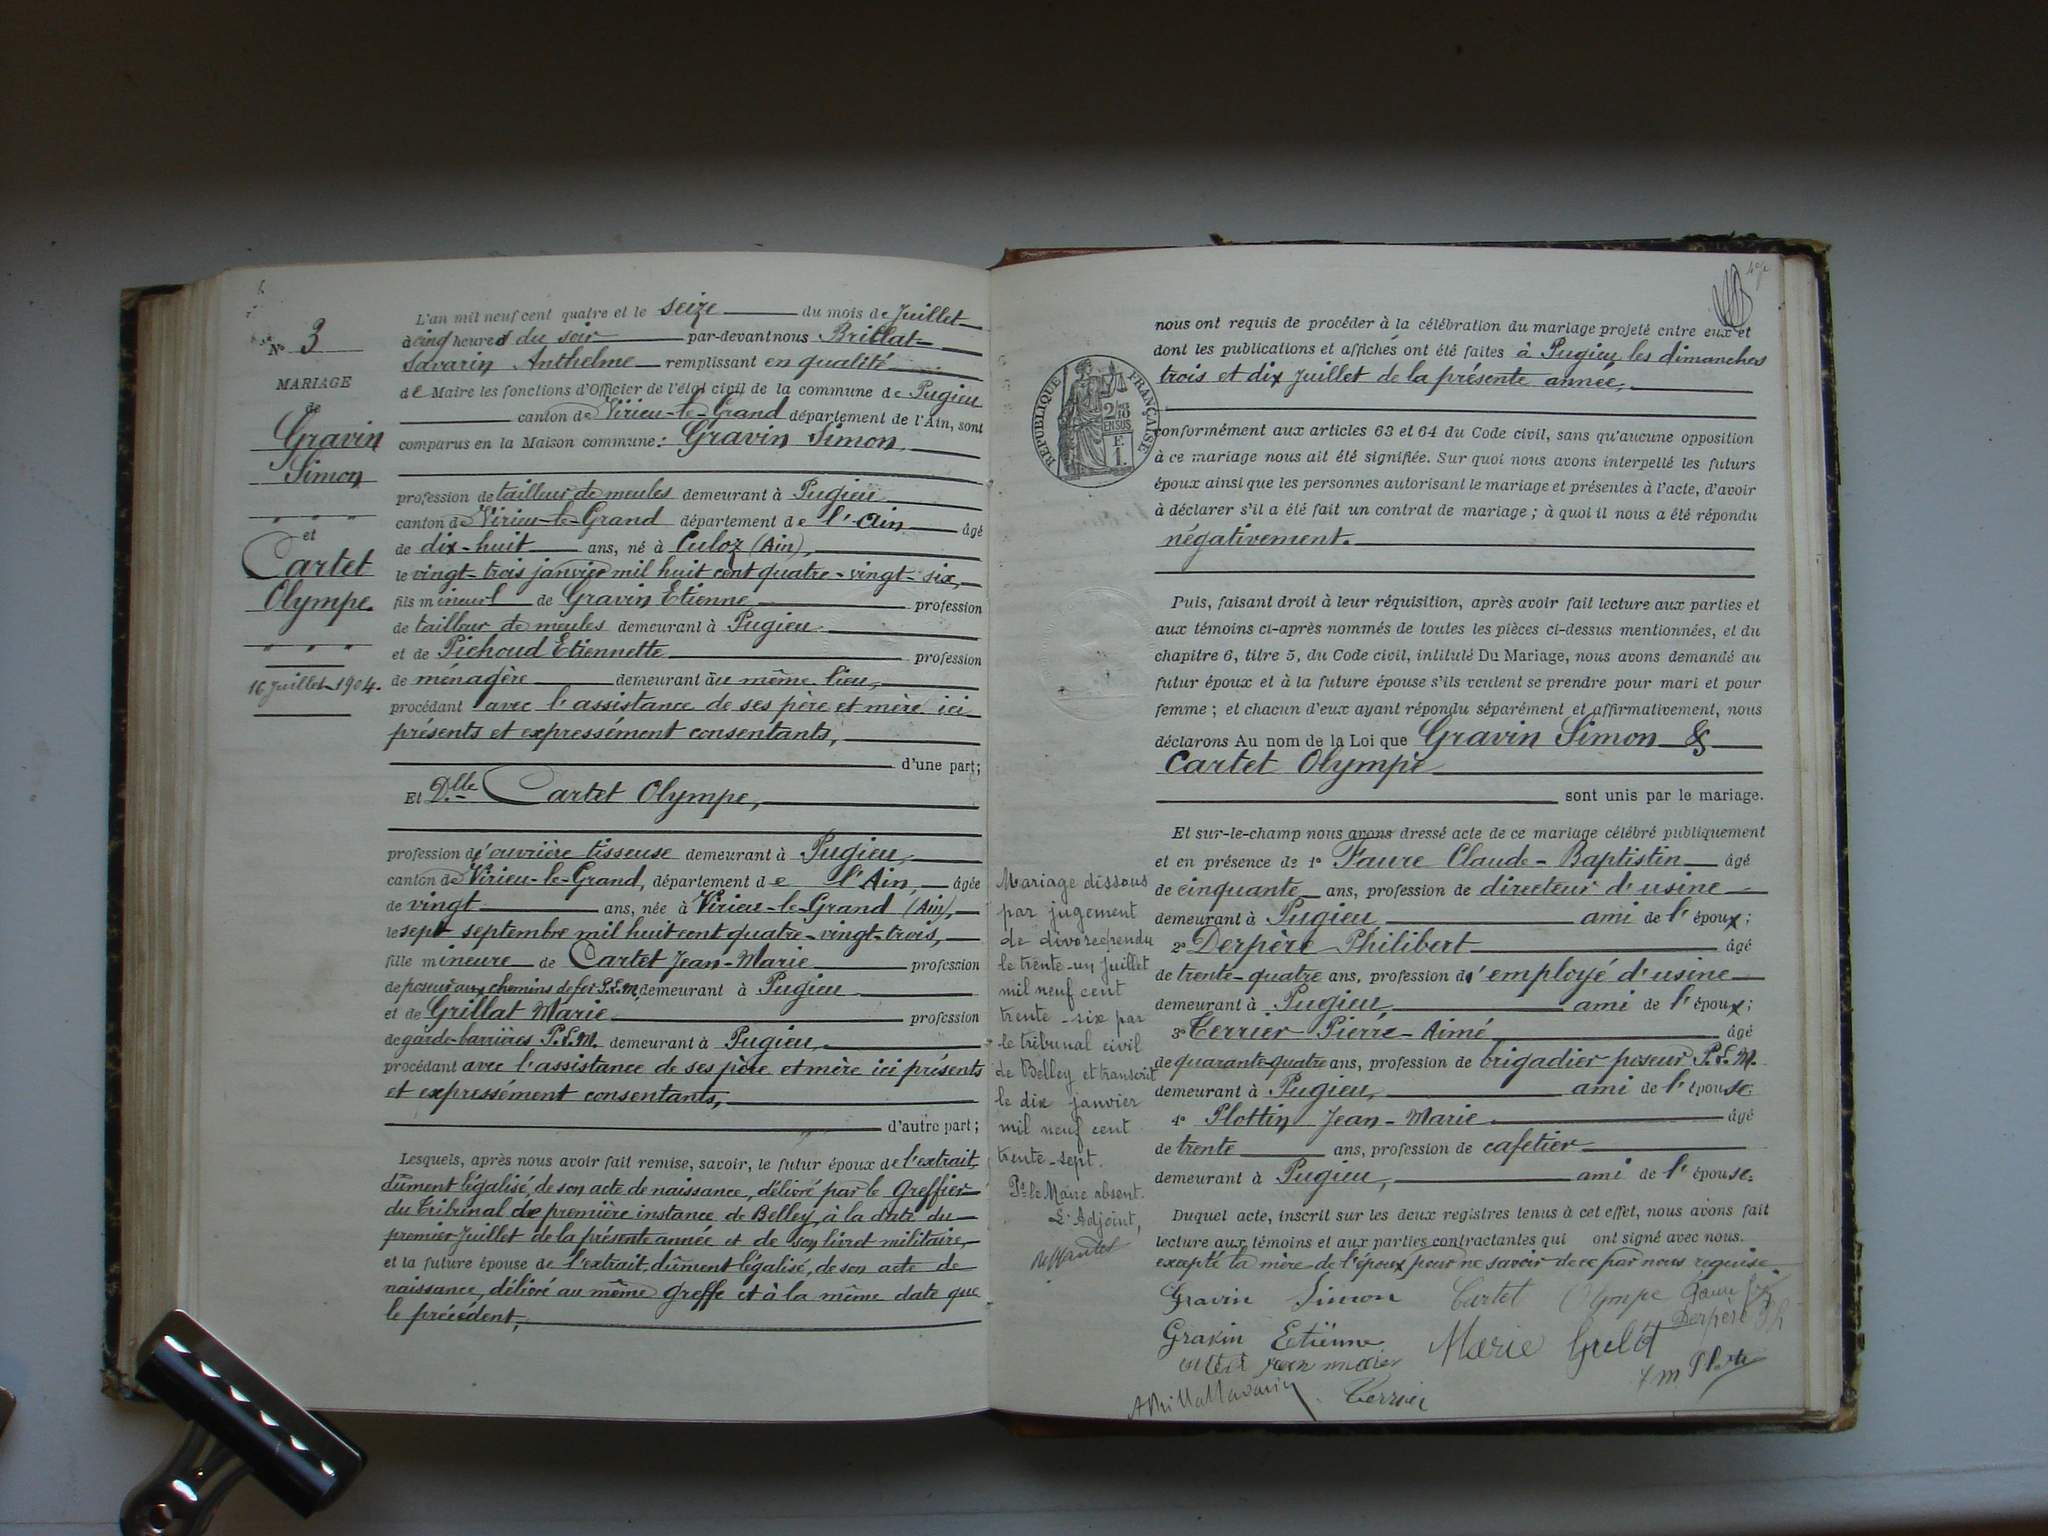 Nº 3
MARIAGE
de
Gravin
Simon
et
Cartet
Olympe.
16 Juillet 1904.
L'an mil neuf cent quatre et le seize du mois de Juillet
à cinq heures du soir par-devant nous Brillat-
Savarin Anthelme remplissant en qualité
de Maire les fonctions d'Officier de l'état civil de la commune de Pugieu
canton de Virieu-le-Grand département de l'Ain, sont
comparus en la Maison commune: Gravin Simon,
profession de tailleur de meules demeurant à Pugieu
canton de Virieu-le-Grand département de l'Ain âgé
de dix-huit ans, né à Culoz (Ain),
le vingt-trois janvier mil huit cent quatre-vingt-six,
fils mineur de Gravin Etienne profession
de tailleur de meules demeurant à Pugieu
et de Pichoud Etiennette profession
de ménagère demeurant au même lieu,
procédant avec l'assistance de ses père et mère ici
présents et expressément consentants,
d'une part;
Et Dlle Cartet Olympe,
profession d'ouvrière tisseuse demeurant à Pugieu,
canton de Virieu-le-Grand, département de l'Ain, âgée
de vingt ans, née à Virieu-le-Grand (Ain),
le sept septembre mil huit cent quatre-vingt-trois,
fille mineure de Cartet Jean-Marie profession
de poseur aux chemins de fer P.L.M. demeurant à Pugieu
et de Grillat Marie profession
de garde-barrières P.L.M. demeurant à Pugieu,
procédant avec l'assistance de ses père et mère ici présents
et expressément consentants,
d'autre part;
Lesquels, après nous avoir fait remise, savoir, le futur époux de l'extrait
dûment légalisé, de son acte de naissance, délivré par le Greffier
du Tribunal de première instance de Belley, à la date du
premier Juillet de la présente année et de son livret militaire,
et la future épouse de l'extrait, dûment légalisé, de son acte de
naissance, délivré au même Greffe et à la même date que
le précédent,
RÉPUBLIQUE FRANÇAISE
2/10 EN SUS
F.
1.
nous ont requis de procéder à la célébration du mariage projeté entre eux et
dont les publications et affiches ont été faites à Pugieu, les dimanches
trois et dix Juillet de la présente année,
conformément aux articles 63 et 64 du Code civil, sans qu'aucune opposition
à ce mariage nous ait été signifiée. Sur quoi nous avons interpellé les futurs
époux ainsi que les personnes autorisant le mariage et présentes à l'acte, d'avoir
à déclarer s'il a été fait un contrat de mariage; à quoi il nous a été répondu
négativement.
Puis, faisant droit à leur réquisition, après avoir fait lecture aux parties et
aux témoins ci-après nommés de toutes les pièces ci-dessus mentionnées, et du
chapitre 6, titre 5, du Code civil, intitulé Du Mariage, nous avons demandé au
futur époux et à la future épouse s'ils veulent se prendre pour mari et pour
femme; et chacun d'eux ayant répondu séparément et affirmativement, nous
déclarons Au nom de la Loi que Gravin Simon &
Cartet Olympe
sont unis par le mariage.
Et sur-le-champ nous avons dressé acte de ce mariage célébré publiquement
et en présence de 1º Faure Claude-Baptistin âgé
de cinquante ans, profession de directeur d'usine
demeurant à Pugieu ami de l'époux;
2º Derpère Philibert âgé
de trente-quatre ans, profession d'employé d'usine
demeurant à Pugieu, ami de l'époux;
3º Terrier Pierre-Aimé âgé
de quarante-quatre ans, profession de brigadier poseur P.L.M.
demeurant à Pugieu, ami de l'épouse
4º Plottin Jean-Marie âgé
de trente ans, profession de cafetier
demeurant à Pugieu, ami de l'épouse.
Duquel acte, inscrit sur les deux registres tenus à cet effet, nous avons fait
lecture aux témoins et aux parties contractantes qui ont signé avec nous.
excepté la mère de l'époux pour ne savoir de ce par nous requise
Gravin Simon Cartet Olympe
Derpère Ph
Gravin Etiënne Marie
Terrier
Mariage dissous
par jugement
de divorce rendu
le trente-un juillet
mil neuf cent
trente-six par
le tribunal civil
de Belley et transcrit
le dix janvier
mil neuf cent
trente-sept.
Pr le Maire absent.
L'Adjoint,